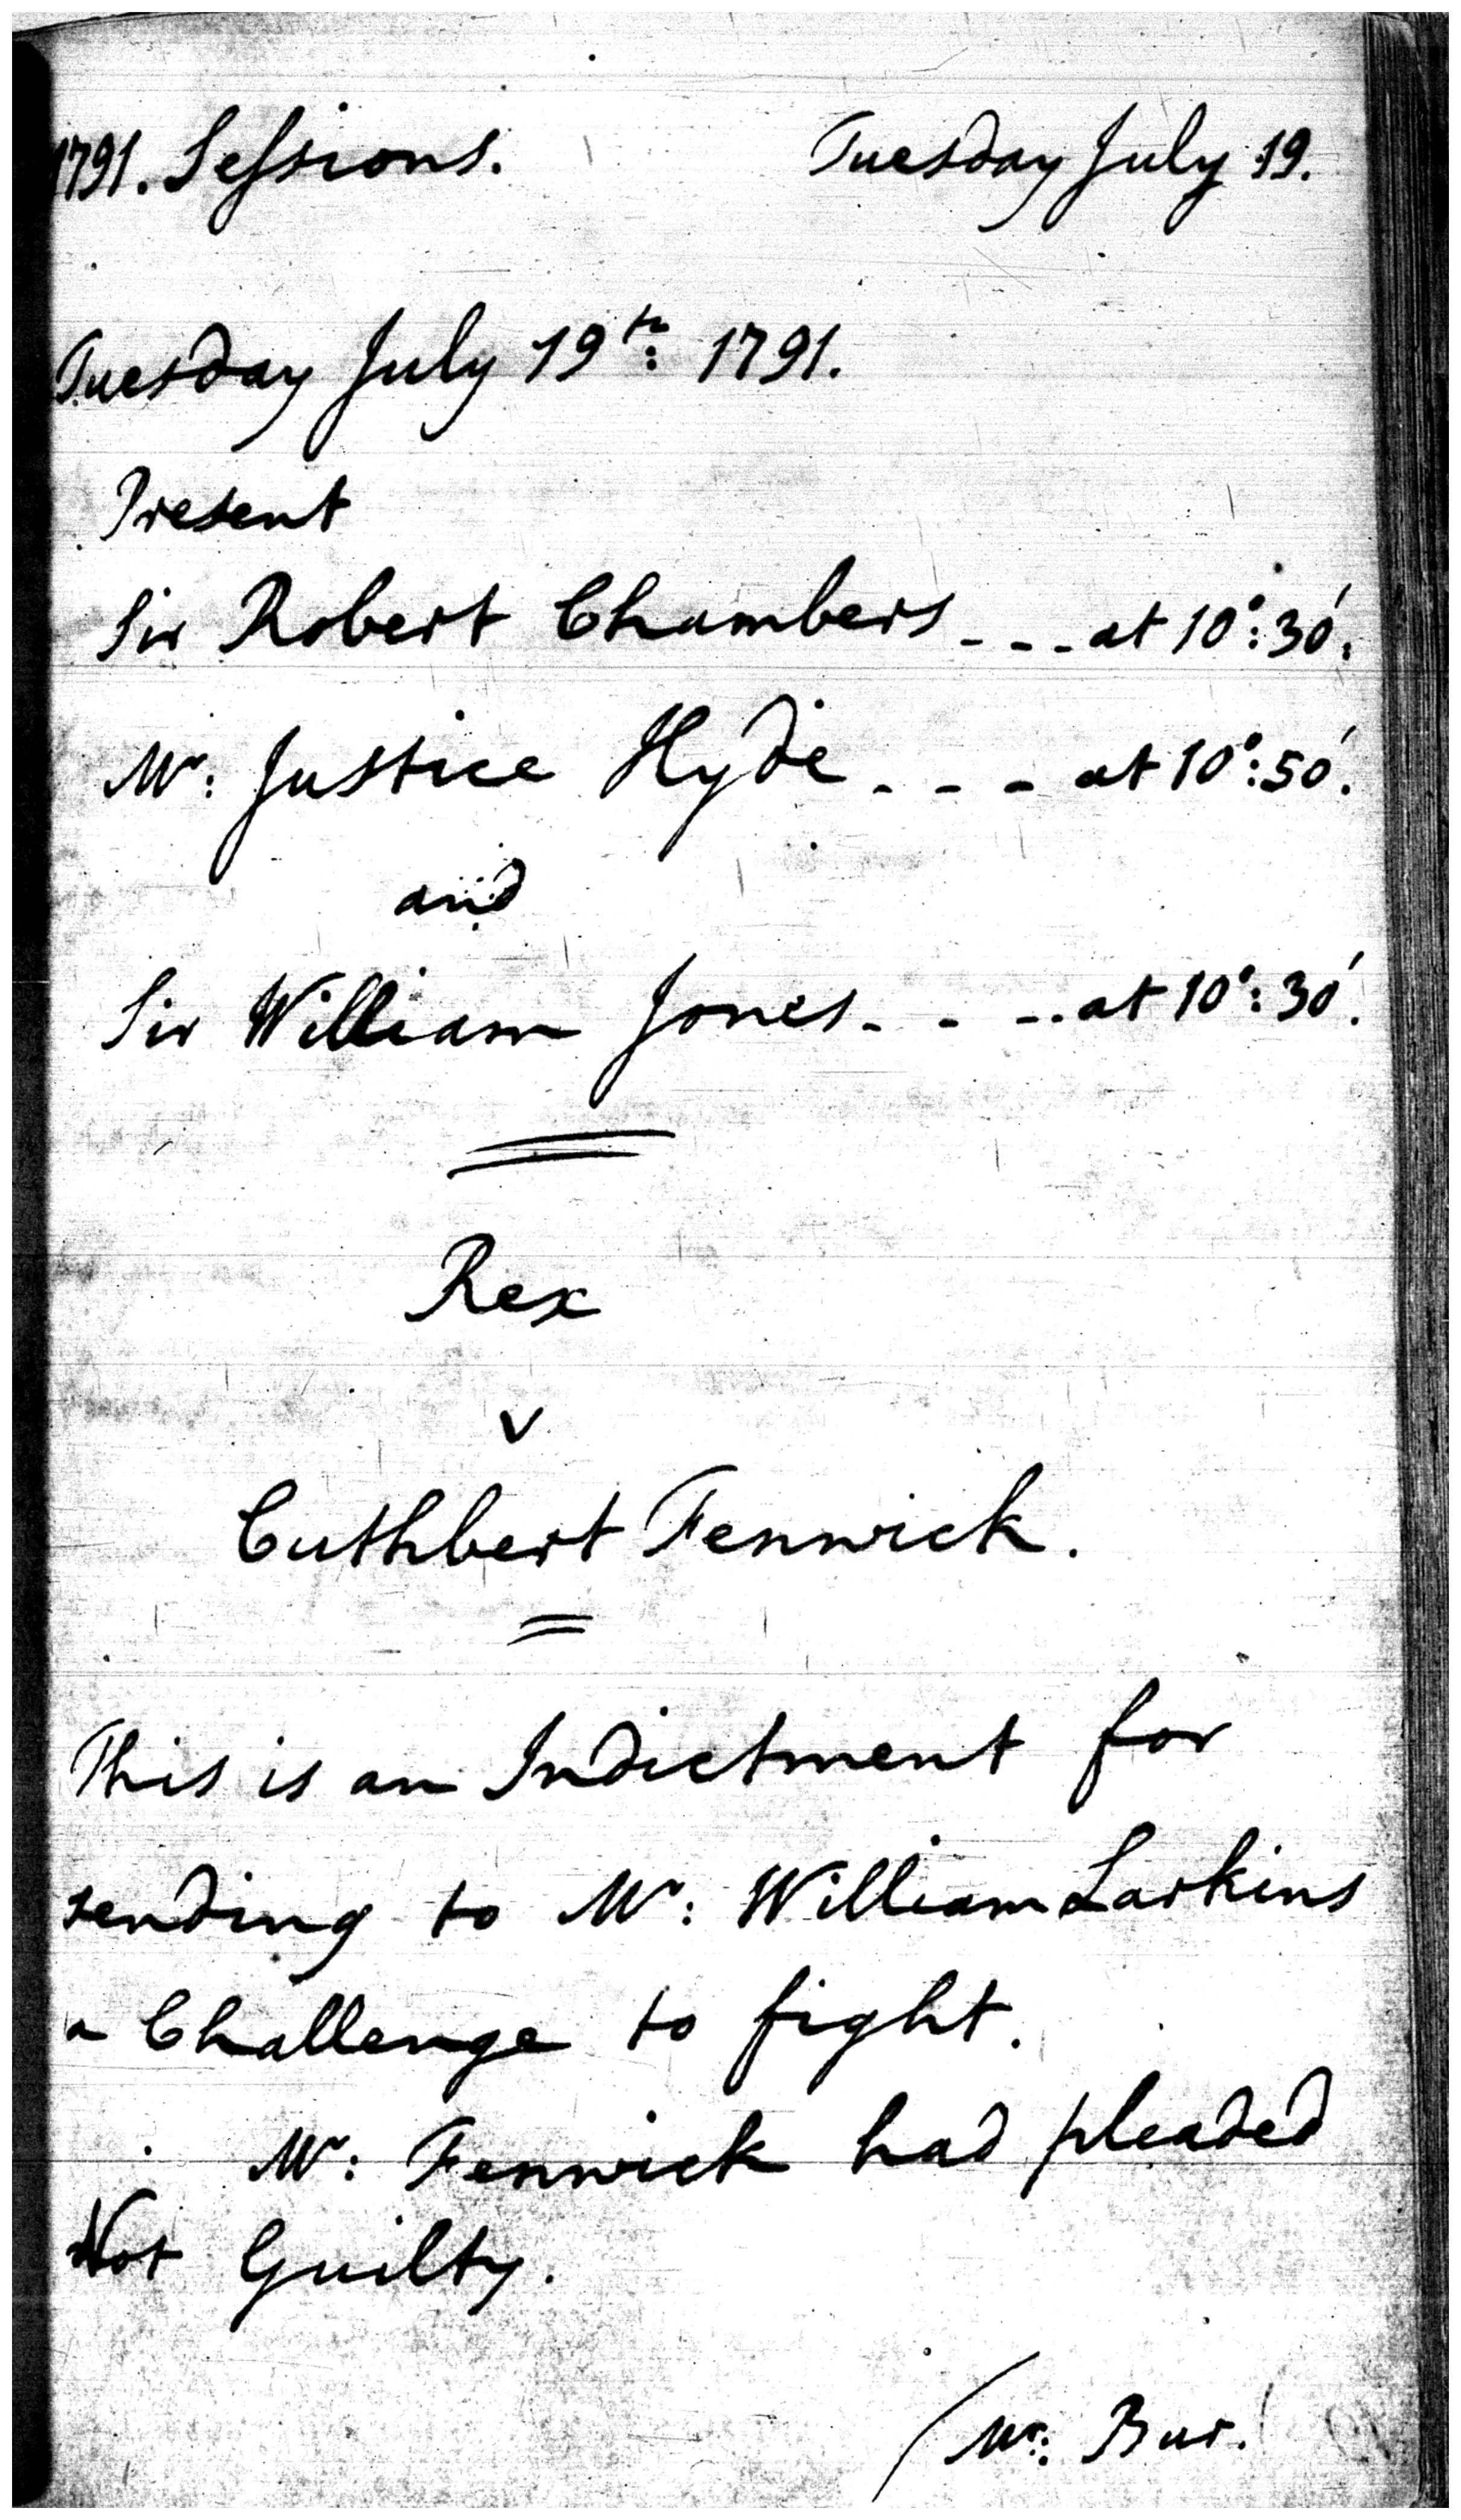 1791. Sessions. Tuesday July 19.
Tuesday July 19th: 1791.
Present
Sir Robert Chambers - - - at 10°: 30'.
Mr: Justice Hyde - - - at 10°: 50'.
and
Sir William Jones - - - at 10°: 30'.
Rex
v
Cuthbert Fenwick.
This is an Indictment for
sending to Mr: William Larkins
a Challenge to fight.
Mr: Fenwick had pleaded
Not Guilty.
(Mr: Bur.